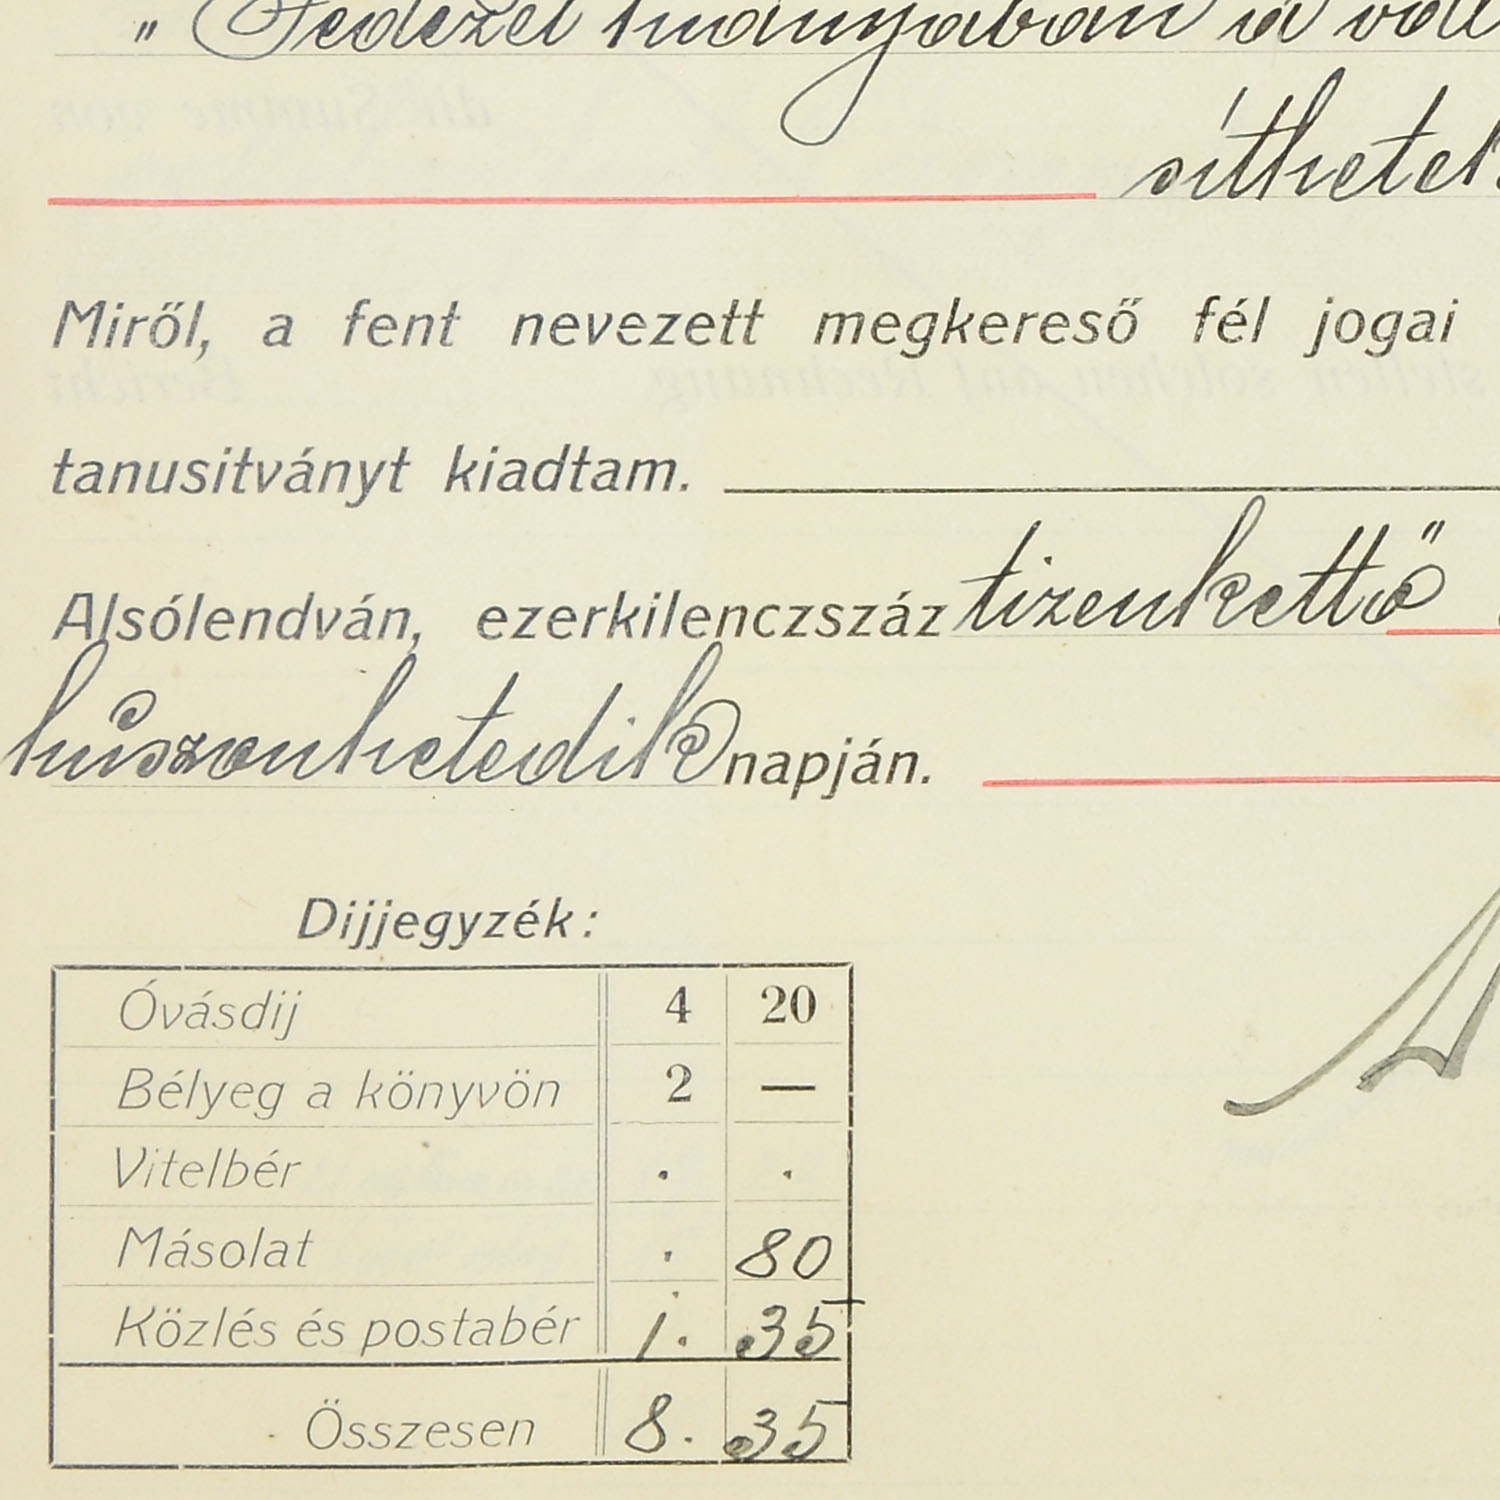 „ Fedezet hiányában a vál
síthetek
Miről, a fent nevezett megkereső fél jogai
tanusitványt kiadtam.
Alsólendván, ezerkilenczszáz tizenkettő
húszonhetedik napján.
Dijjegyzék:
Óvásdij 4 20
Bélyeg a könyvön 2 —
Vitelbér . .
Másolat . 80
Közlés és postabér 1. 35
Összesen 8. 35